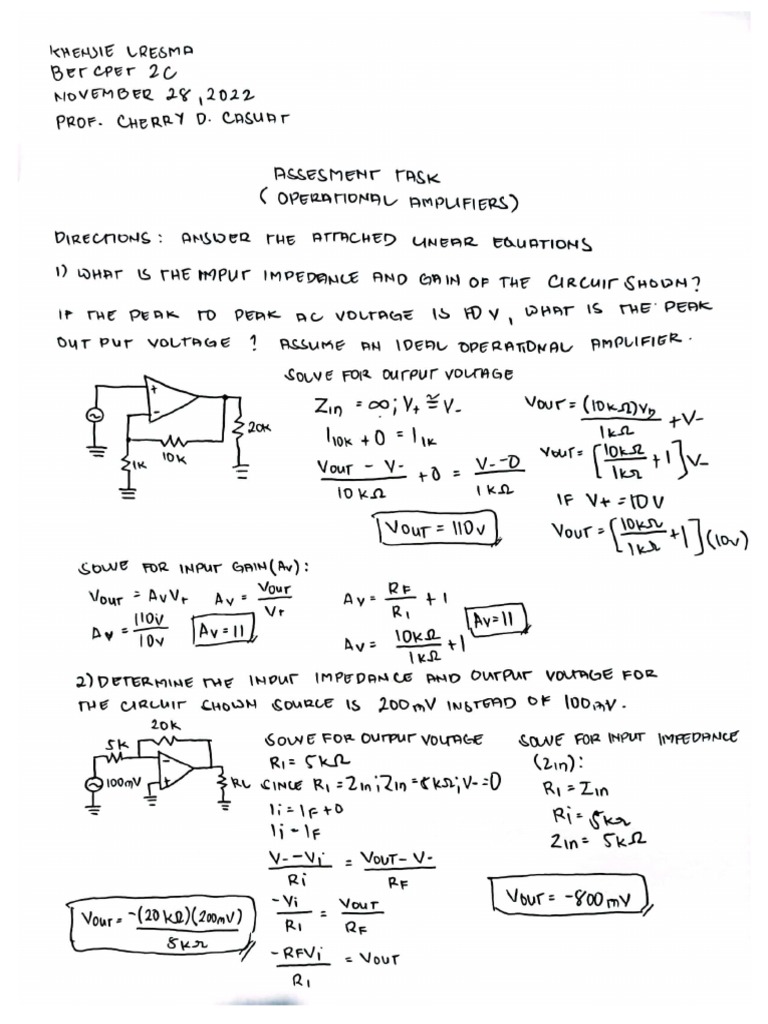 KHENJIE URESMA
BET CPET 2C
NOVEMBER 28, 2022
PROF. CHERRY D. CASUAT
ASSESMENT TASK
( OPERATIONAL AMPLIFIERS)
DIRECTIONS : ANSWER THE ATTACHED LINEAR EQUATIONS
1) WHAT IS THE IMPUT IMPEDANCE AND GAIN OF THE CIRCUIT SHOWN?
IF THE PEAK TO PEAK AC VOLTAGE IS 10 V, WHAT IS THE PEAK
OUT PUT VOLTAGE ? ASSUME AN IDEAL OPERATIONAL AMPLIFIER.
SOLVE FOR OUTPUT VOLTAGE
+
-
20K
10K
1K
Zin = ∞; V+ ≅ V-
I10K + 0 = I1K
Vout - V- / 10 kΩ + 0 = V- - 0 / 1 kΩ
Vout = 110v
Vout = (10kΩ)Vp / 1kΩ + V-
Vout = [10kΩ / 1kΩ + 1] V-
IF V+ = 10V
Vout = [10kΩ / 1kΩ + 1] (10v)
SOLVE FOR INPUT GAIN (Av) :
Vout = AvV+ Av = Vout / V+
Av = 110v / 10v Av = 11
Av = RF / R1 + 1
Av = 10kΩ / 1kΩ + 1
Av = 11
2) DETERMINE THE INPUT IMPEDANCE AND OUTPUT VOLTAGE FOR
THE CIRCUIT SHOWN SOURCE IS 200mV INSTEAD OF 100mV.
20K
5K
-
+
100mV
RL
SOLVE FOR OUTPUT VOLTAGE
R1 = 5kΩ
SINCE R1 = Zin; Zin = 5kΩ; V- = 0
Ii = IF + 0
Ii = IF
V- - Vi / Ri = Vout - V- / RF
-Vi / R1 = Vout / RF
-RFVi / R1 = Vout
Vout = -(20kΩ)(200mV) / 5kΩ
SOLVE FOR INPUT IMPEDANCE
(Zin) :
R1 = Zin
Ri = 5kΩ
Zin = 5kΩ
Vout = -800mV